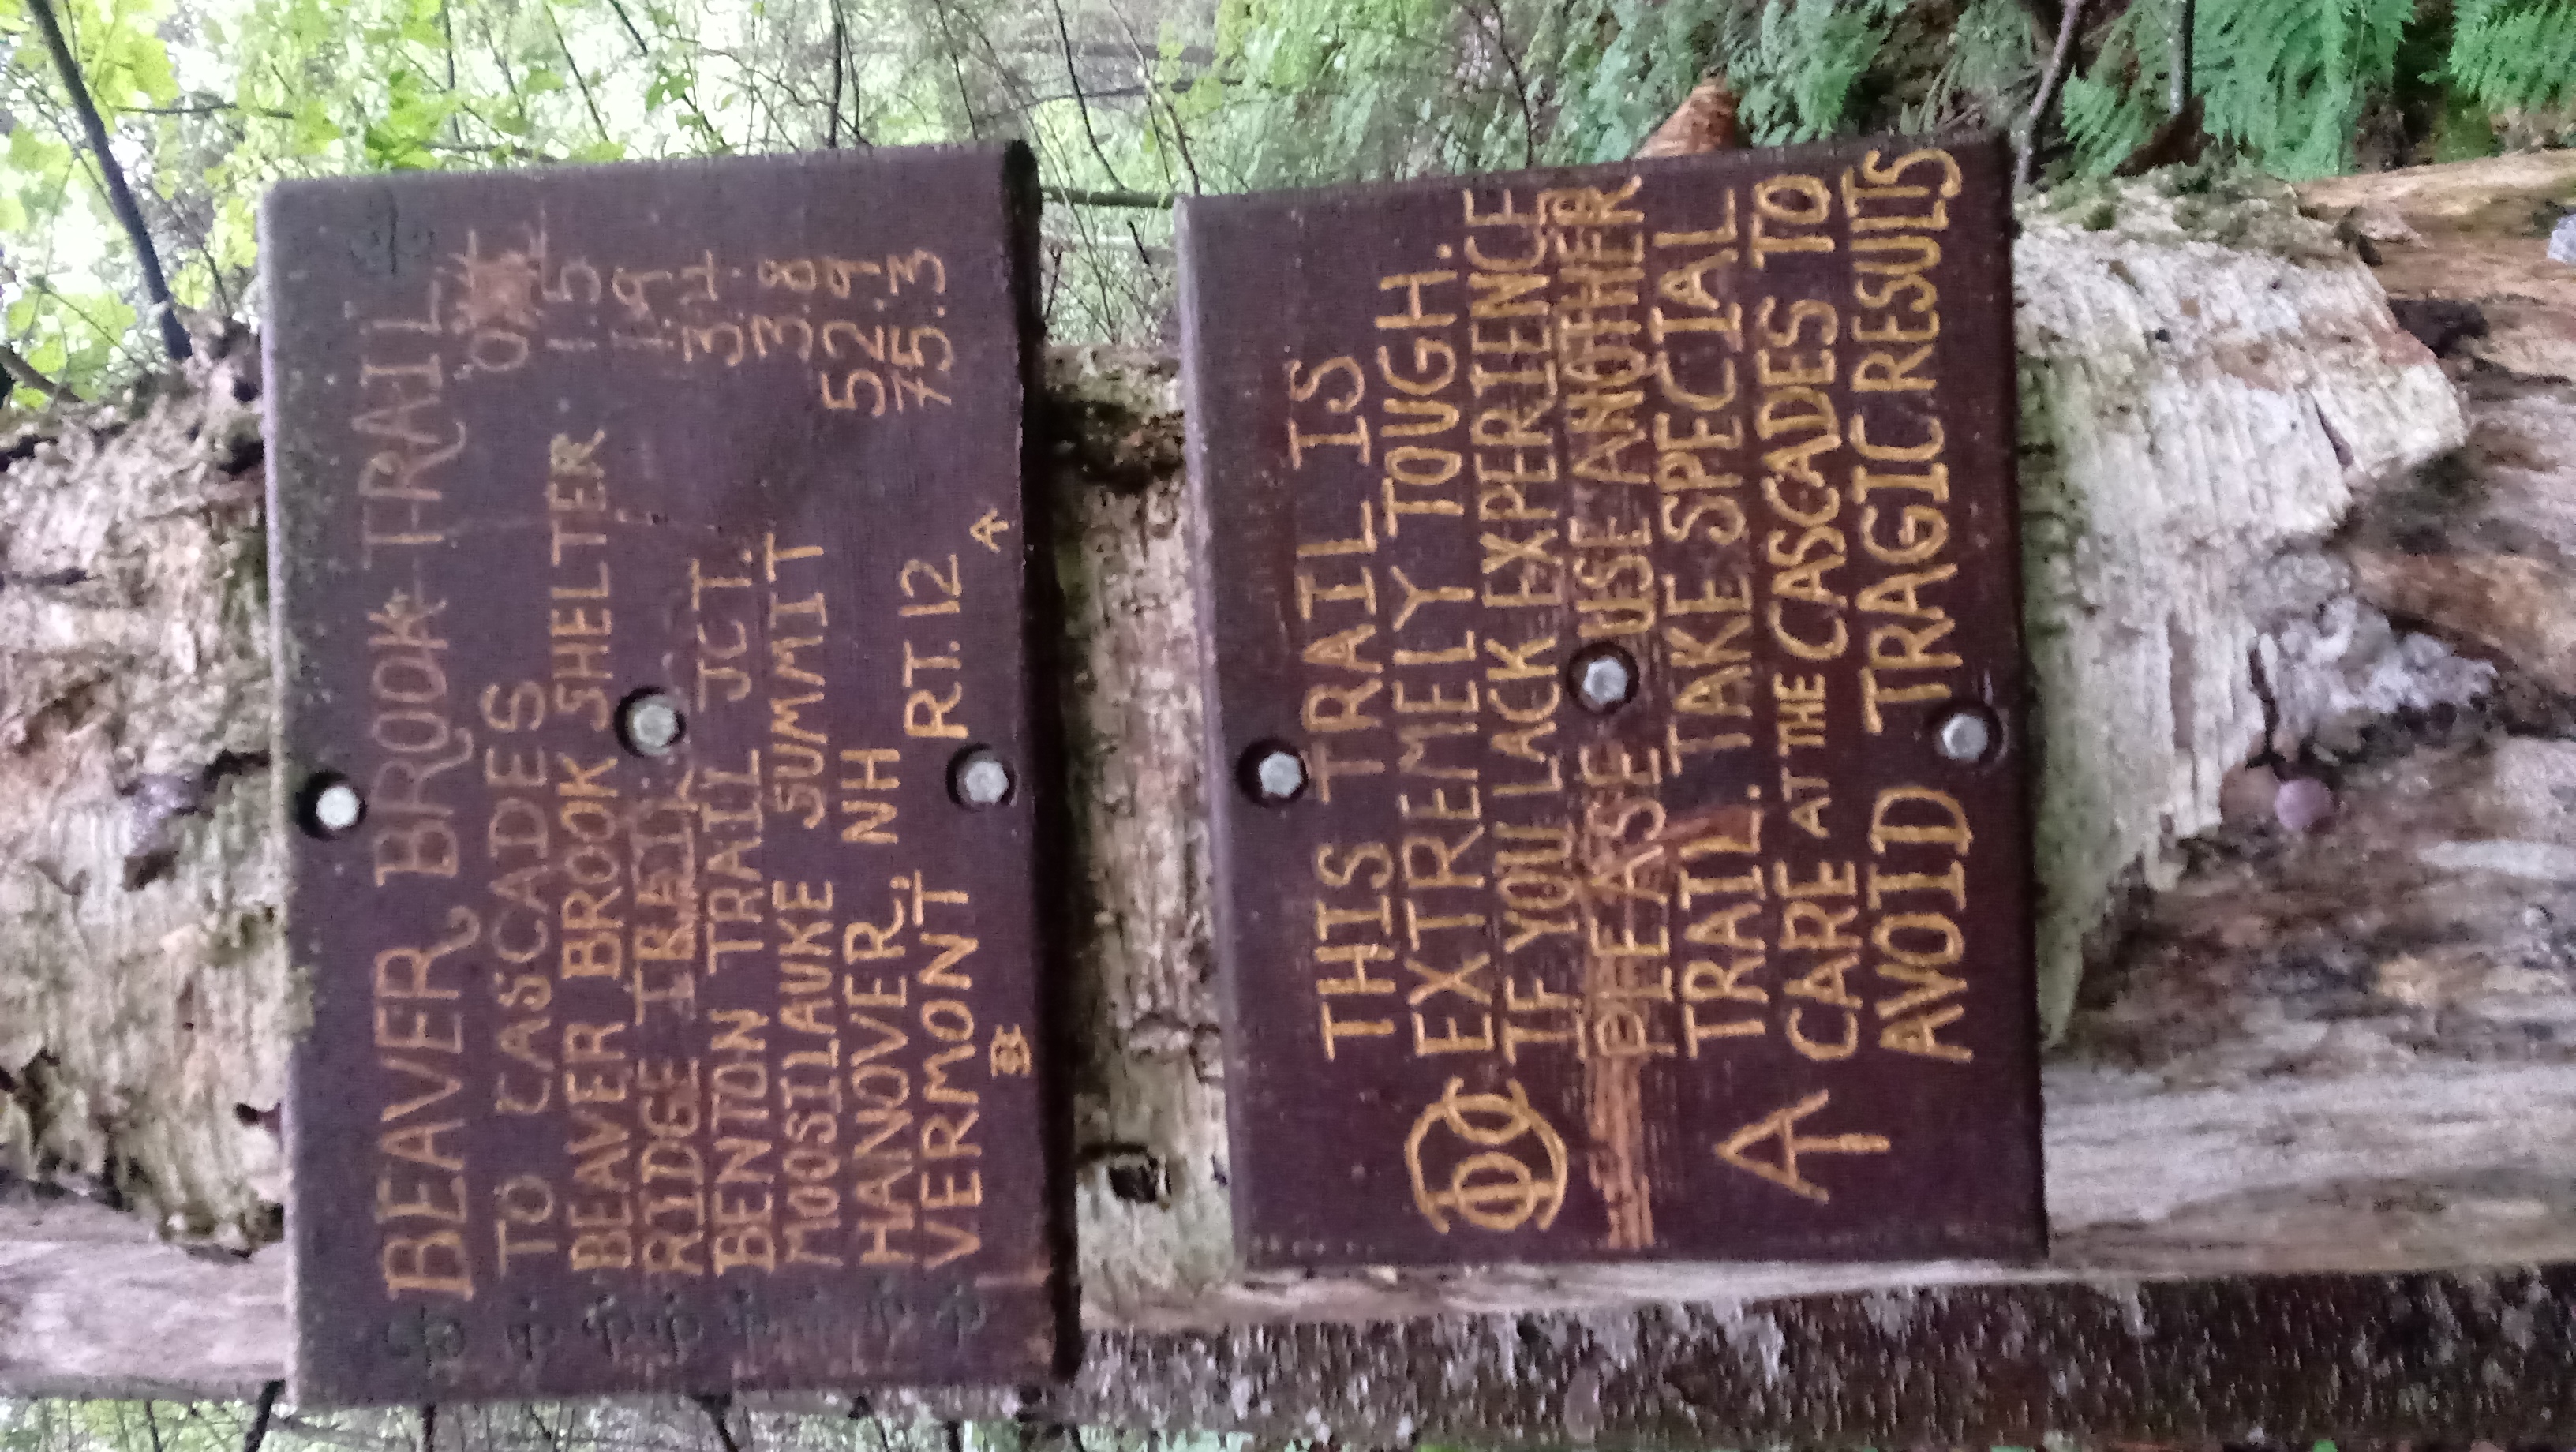 BEAVER BROOK TRAIL
TO CASCADES
BEAVER BROOK SHELTER 1.5
RIDGE TRAIL 1.9
BENTON TRAIL JCT. 3.4
MOOSILAUKE SUMMIT 3.8
HANOVER, NH 52.9
VERMONT RT. 12 75.3
THIS TRAIL IS
EXTREMELY TOUGH.
IF YOU LACK EXPERIENCE
PLEASE USE ANOTHER
TRAIL. TAKE SPECIAL
CARE AT THE CASCADES TO
AVOID TRAGIC RESULTS